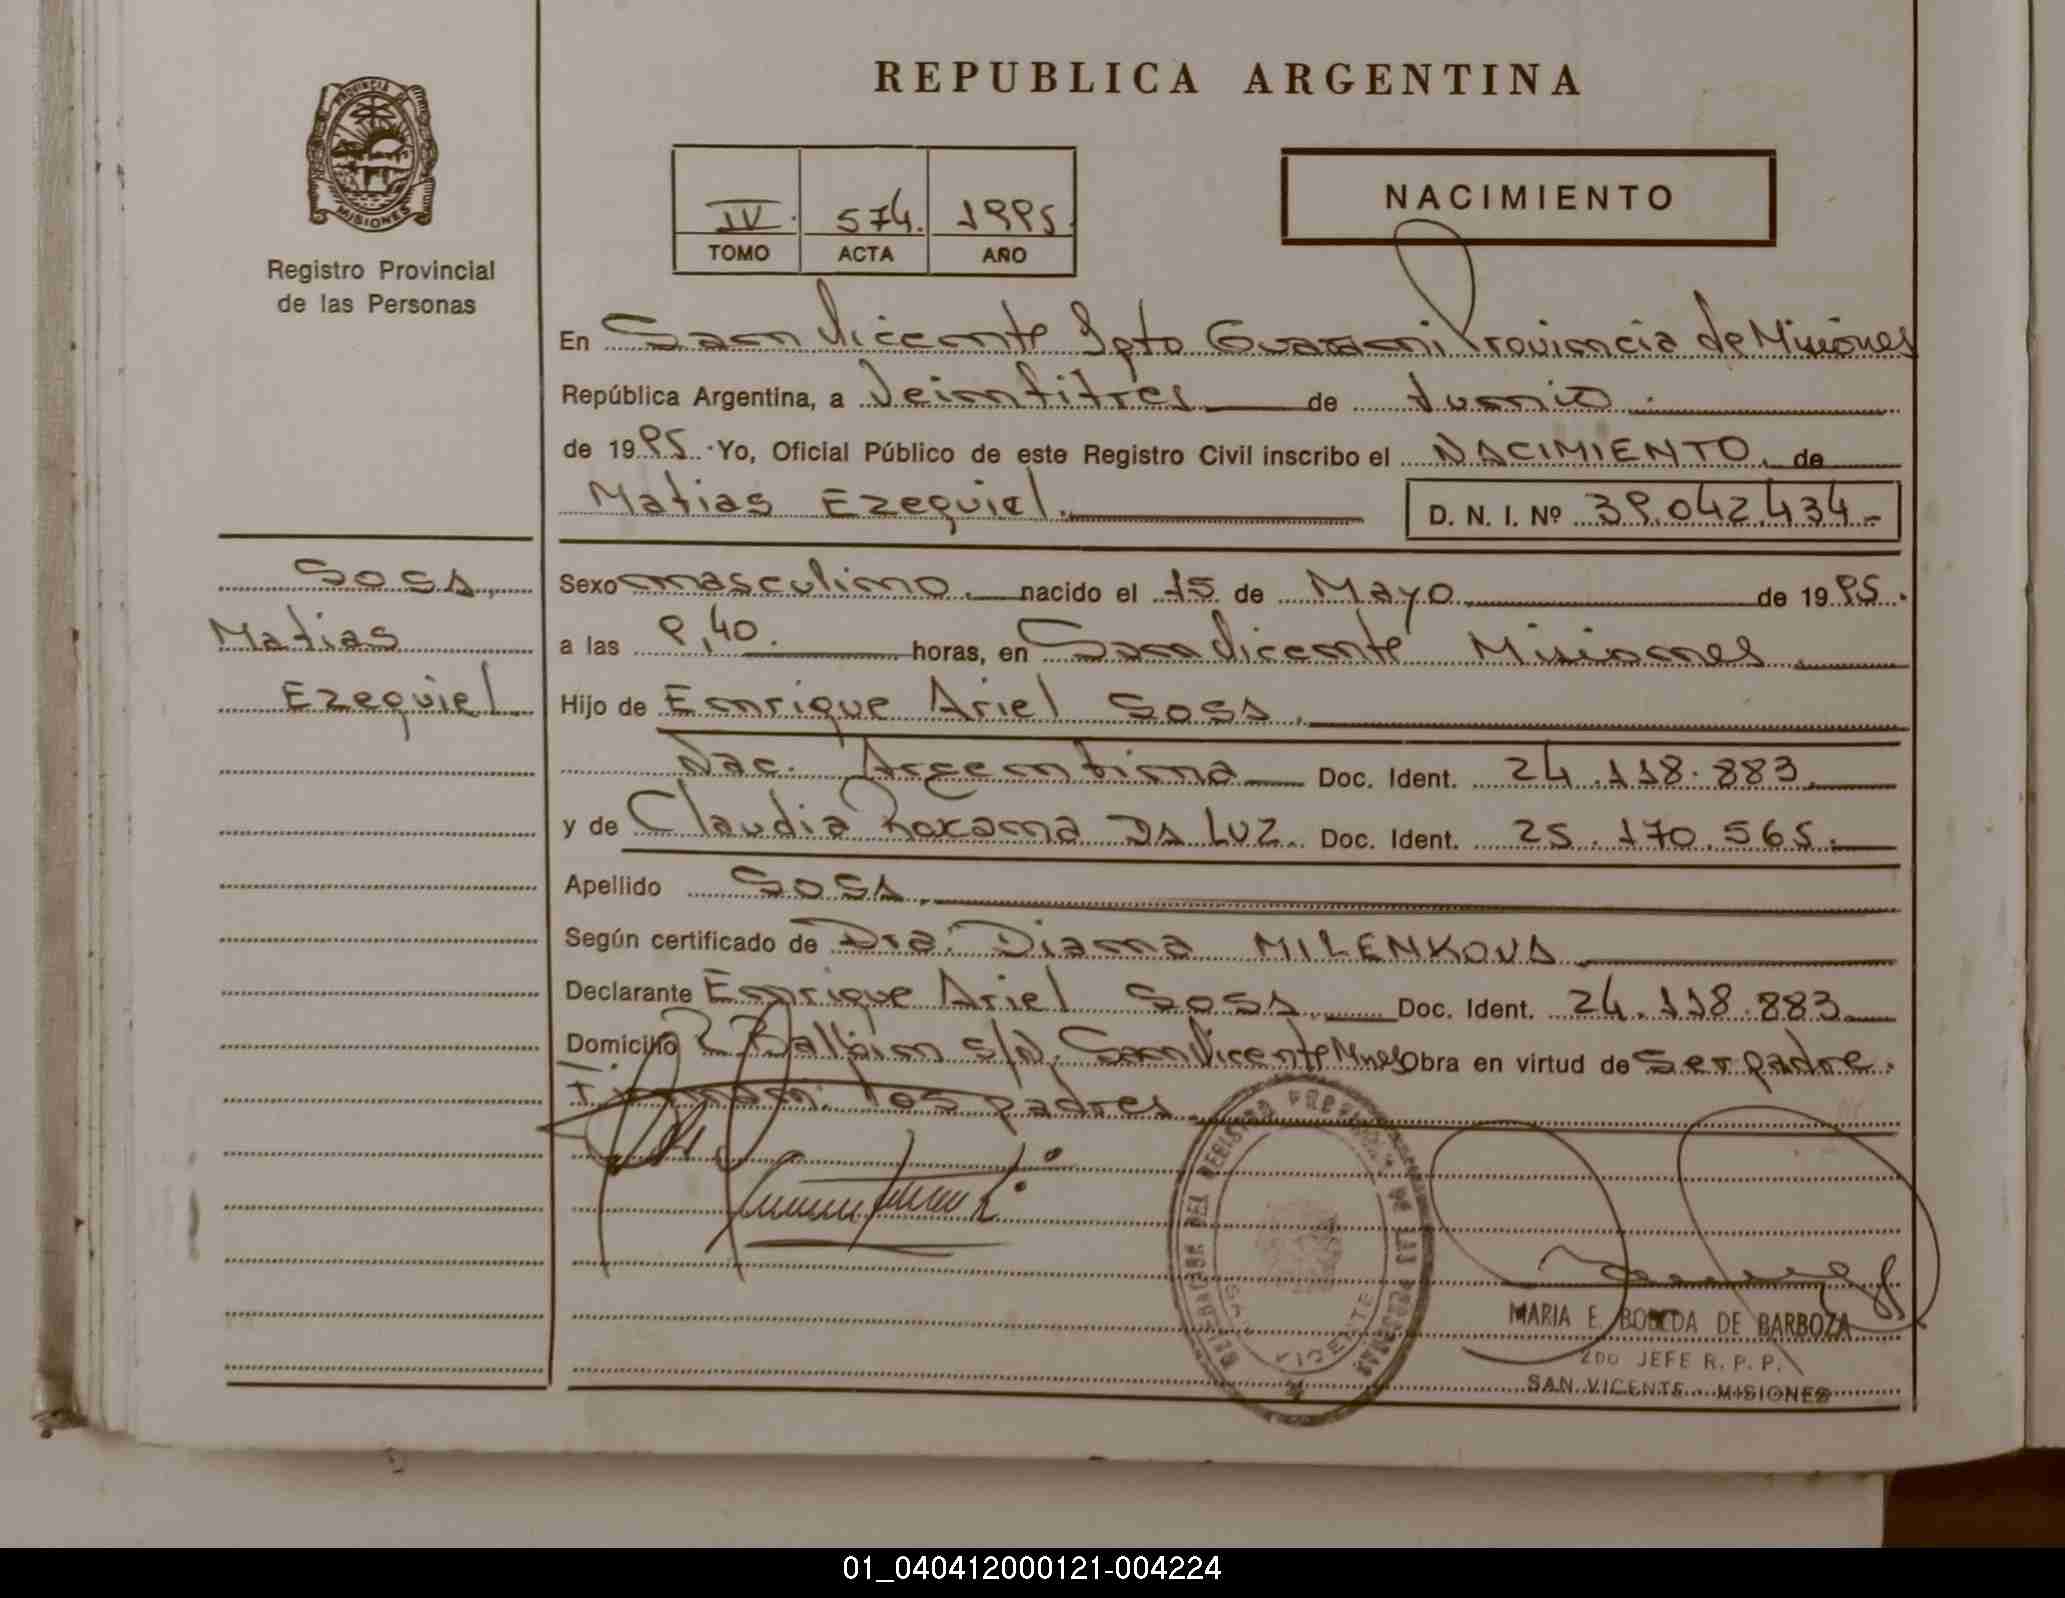 REPUBLICA ARGENTINA
PROVINCIA DE
MISIONES
Registro Provincial
de las Personas
IV. 574. 1995.
TOMO ACTA AÑO
NACIMIENTO
En San Vicente Dpto Guarani Provincia de Misiones
República Argentina, a Veintitres de Junio.
de 1995. Yo, Oficial Público de este Registro Civil inscribo el NACIMIENTO. de
Matias Ezequiel. D. N. I. Nº 39.042.434.-
Sosa,
Matias
Ezequiel
Sexo masculino. nacido el 15 de Mayo de 1995.
a las 9,40. horas, en San Vicente Misiones
Hijo de Enrique Ariel Sosa.
Nac. Argentina Doc. Ident. 24.118.883.
y de Claudia Roxana DA LUZ. Doc. Ident. 25.170.565.
Apellido Sosa.
Según certificado de Dra. Diana MILENKOVA
Declarante Enrique Ariel Sosa. Doc. Ident. 24.118.883.
Domicilio R Balbin s/n. San Vicente Mnes Obra en virtud de ser padre.
Firman: los padres.
REGISTRO PROVINCIAL DE LAS PERSONAS
SAN VICENTE
MARIA E. DE BARBOZA
2DO JEFE R. P. P.
SAN VICENTE - MISIONES
01_040412000121-004224